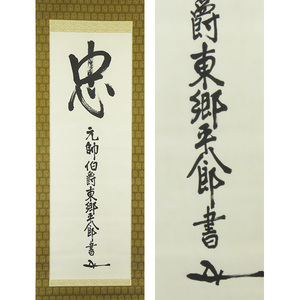 忠
元帥伯爵東郷平八郎書
爵東郷平八郎書